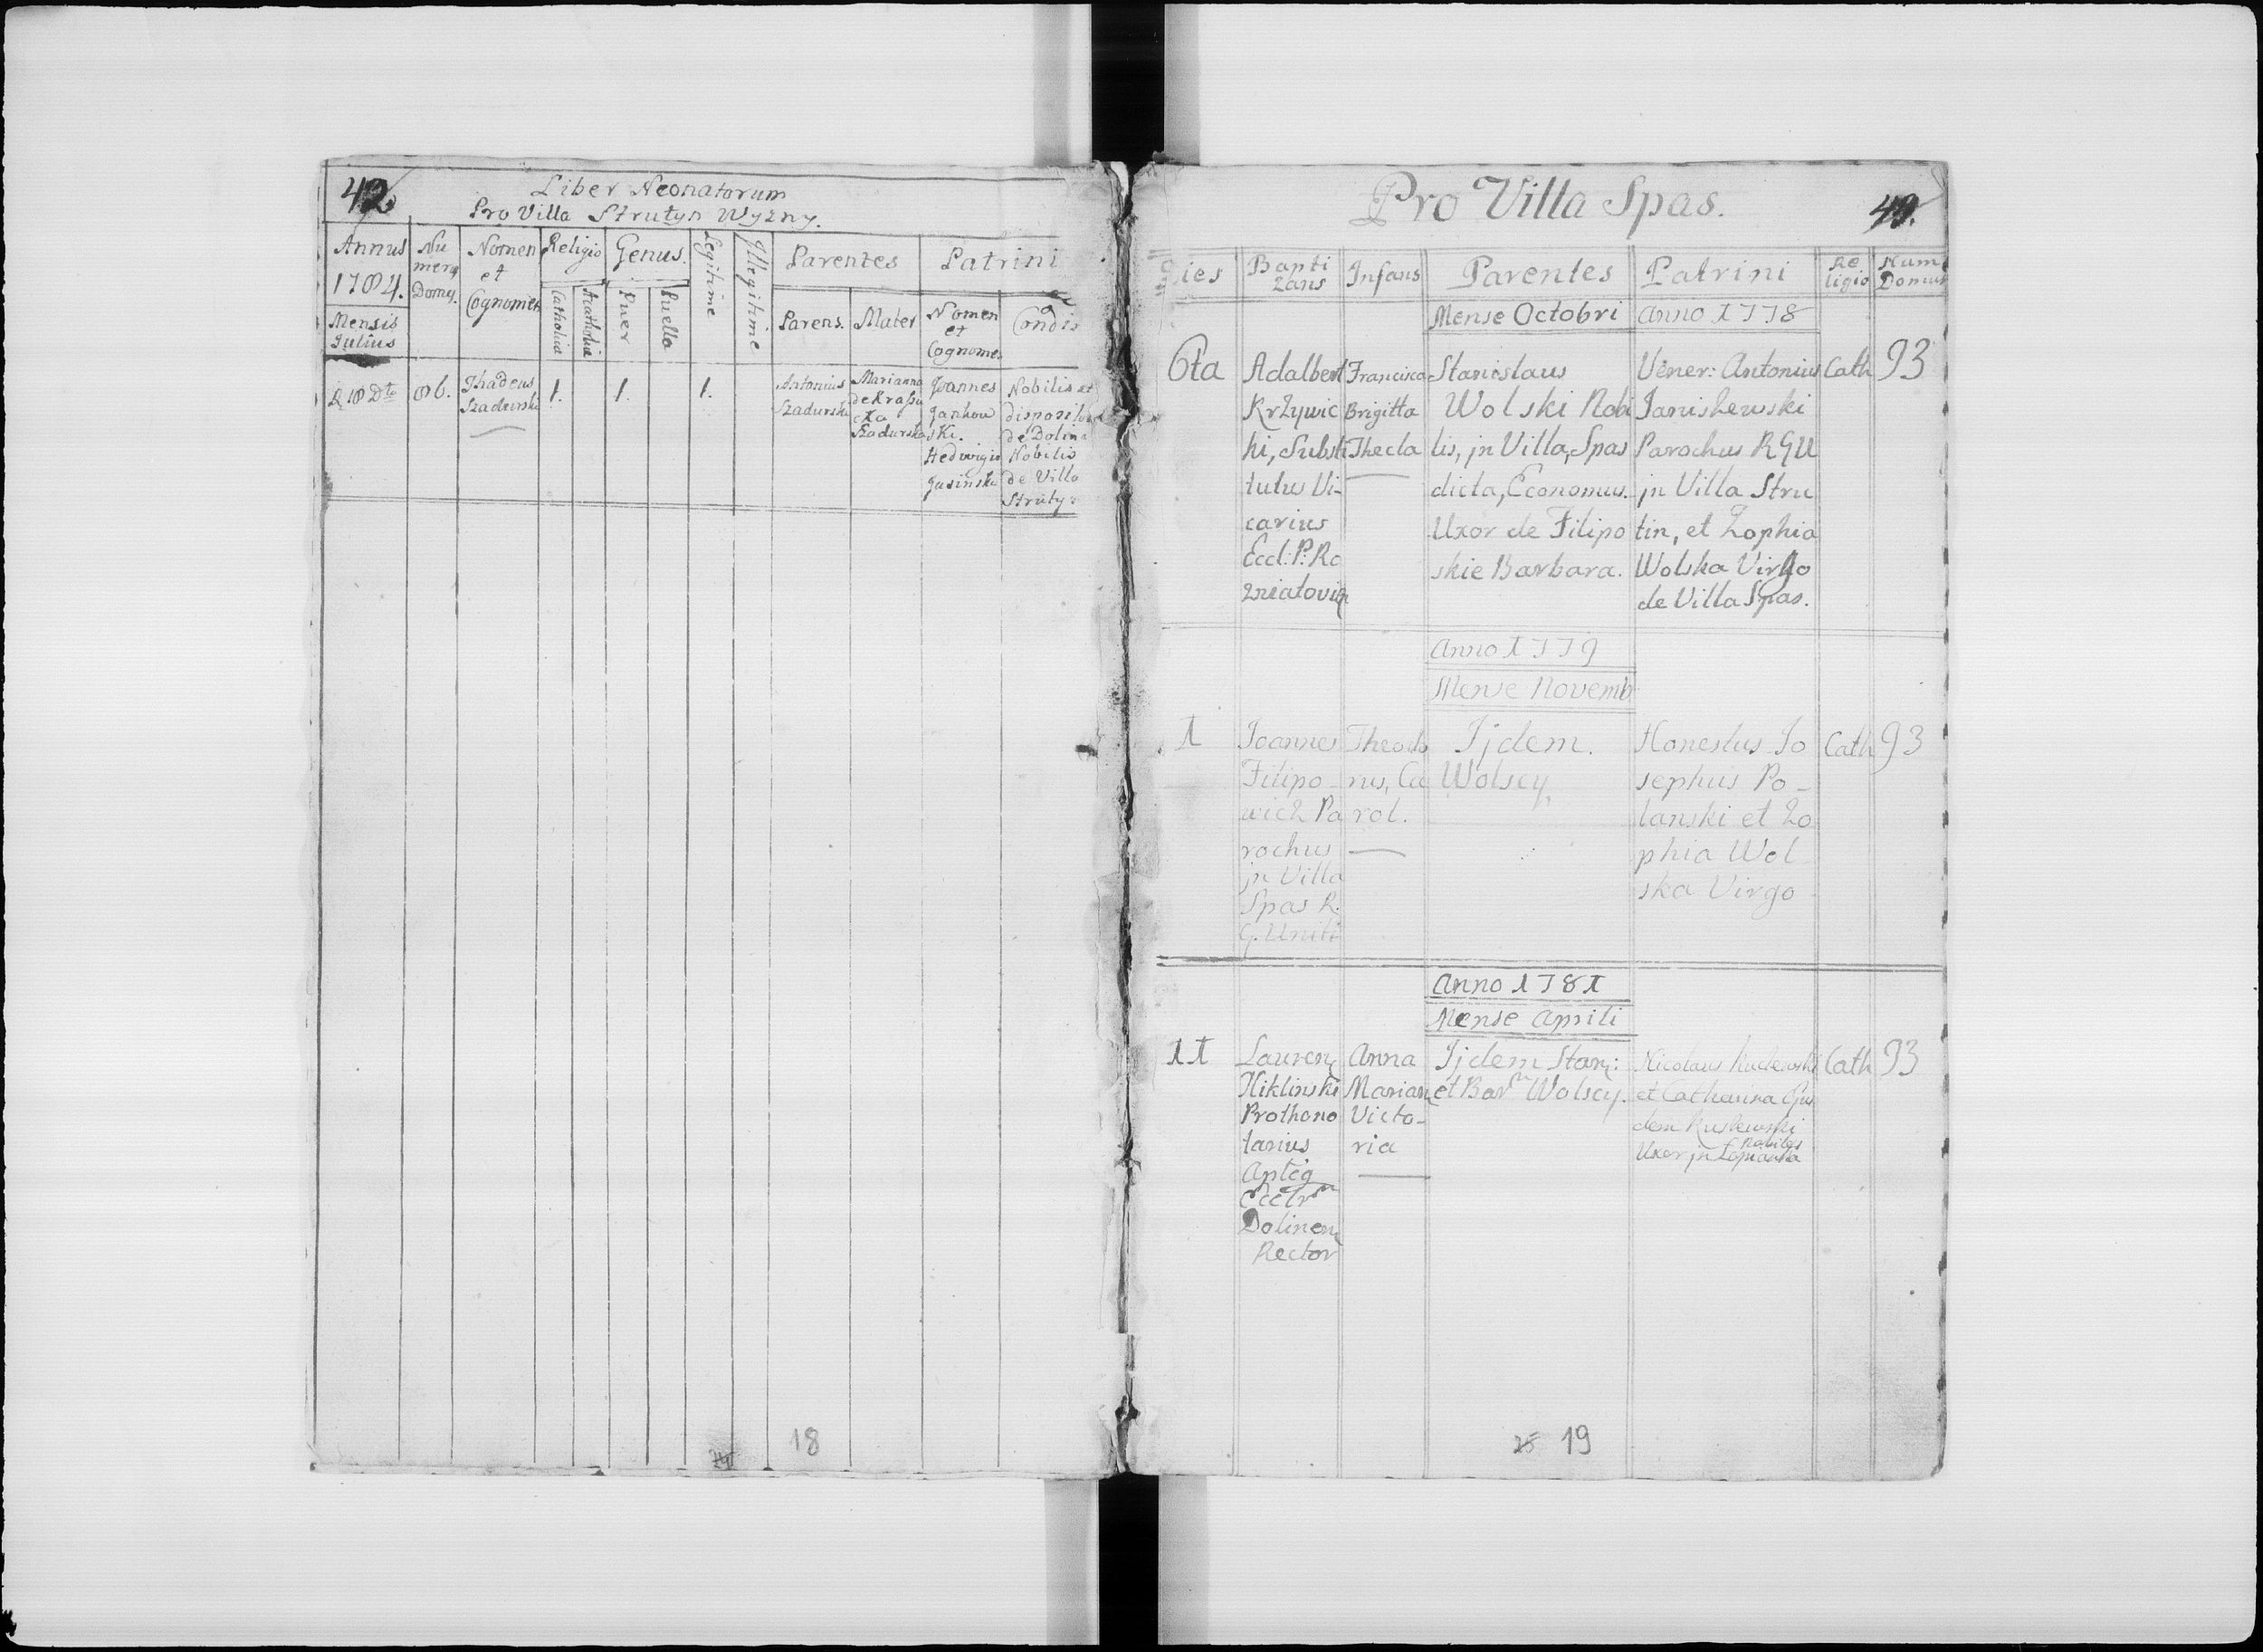 42
Liber Neonatorum
Pro Villa Strutyn Wyzny.
Annus 1784.
Mensis Julius
Numerq Domq.
Nomen et Cognomen
Religio
Catholica
Acatholica
Genus.
Puer
Puella
Legitime
Illegitime
Parentes
Parens.
Mater
Patrini
Nomen et Cognomen
Condi
18 Dto
86.
Thadeus
Szadurski
1.
1.
1.
Antonius
Szadurski
Marianna
de Krasu
cka
Szadurska
Joannes
Jankow
ski.
Hedwigis
Jasinska
Nobilis et
dispositor
de Dolina
Nobilis
de Villa
Struty
18
Pro Villa Spas.
49.
Dies
Bapti
zans
Infans
Parentes
Patrini
Re
ligio
Num
Domus
Mense Octobri
Anno 1778
6ta
Adalbert
Krzywic
ki, Substi
tutus Vi-
carius
Eccl: P: Ro
zniatovien
Francisca
Brigitta
Thecla
Stanislaus
Wolski Nobi
lis, jn Villa, Spas
dicta, Economus.
Uxor de Filipo
skie Barbara.
Vener: Antonius
Janishewski
Parochus RGU
jn Villa Stru
tin, et Zophia
Wolska Virgo
de Villa Spas.
Cath
93
Anno 1779
Mense Novemb
1
Joannes
Filipo-
wicz Pa
rochus
jn Villa
Spas R.
G. Uniti
Theodo
rus, Ca
rol.
Ijdem.
Wolscy,
Honestus Jo
sephus Po-
lanski et Zo
phia Wol
ska Virgo
Cath
93
Anno 1781
Mense Aprili
11
Lauren
Niklinski
Prothono
tarius
Aptcq
Dolinen
Rector
Anna
Mariann
Victo-
ria
Ijdem Stan:
et Bar Wolscy.
Nicolaus
et Catharina Ejus
dem
nobiles
Uxor jn
Cath
93
25 19